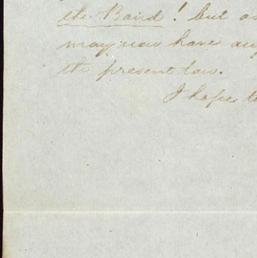 the Baird! but as
may now have any
the present law.
I hope to